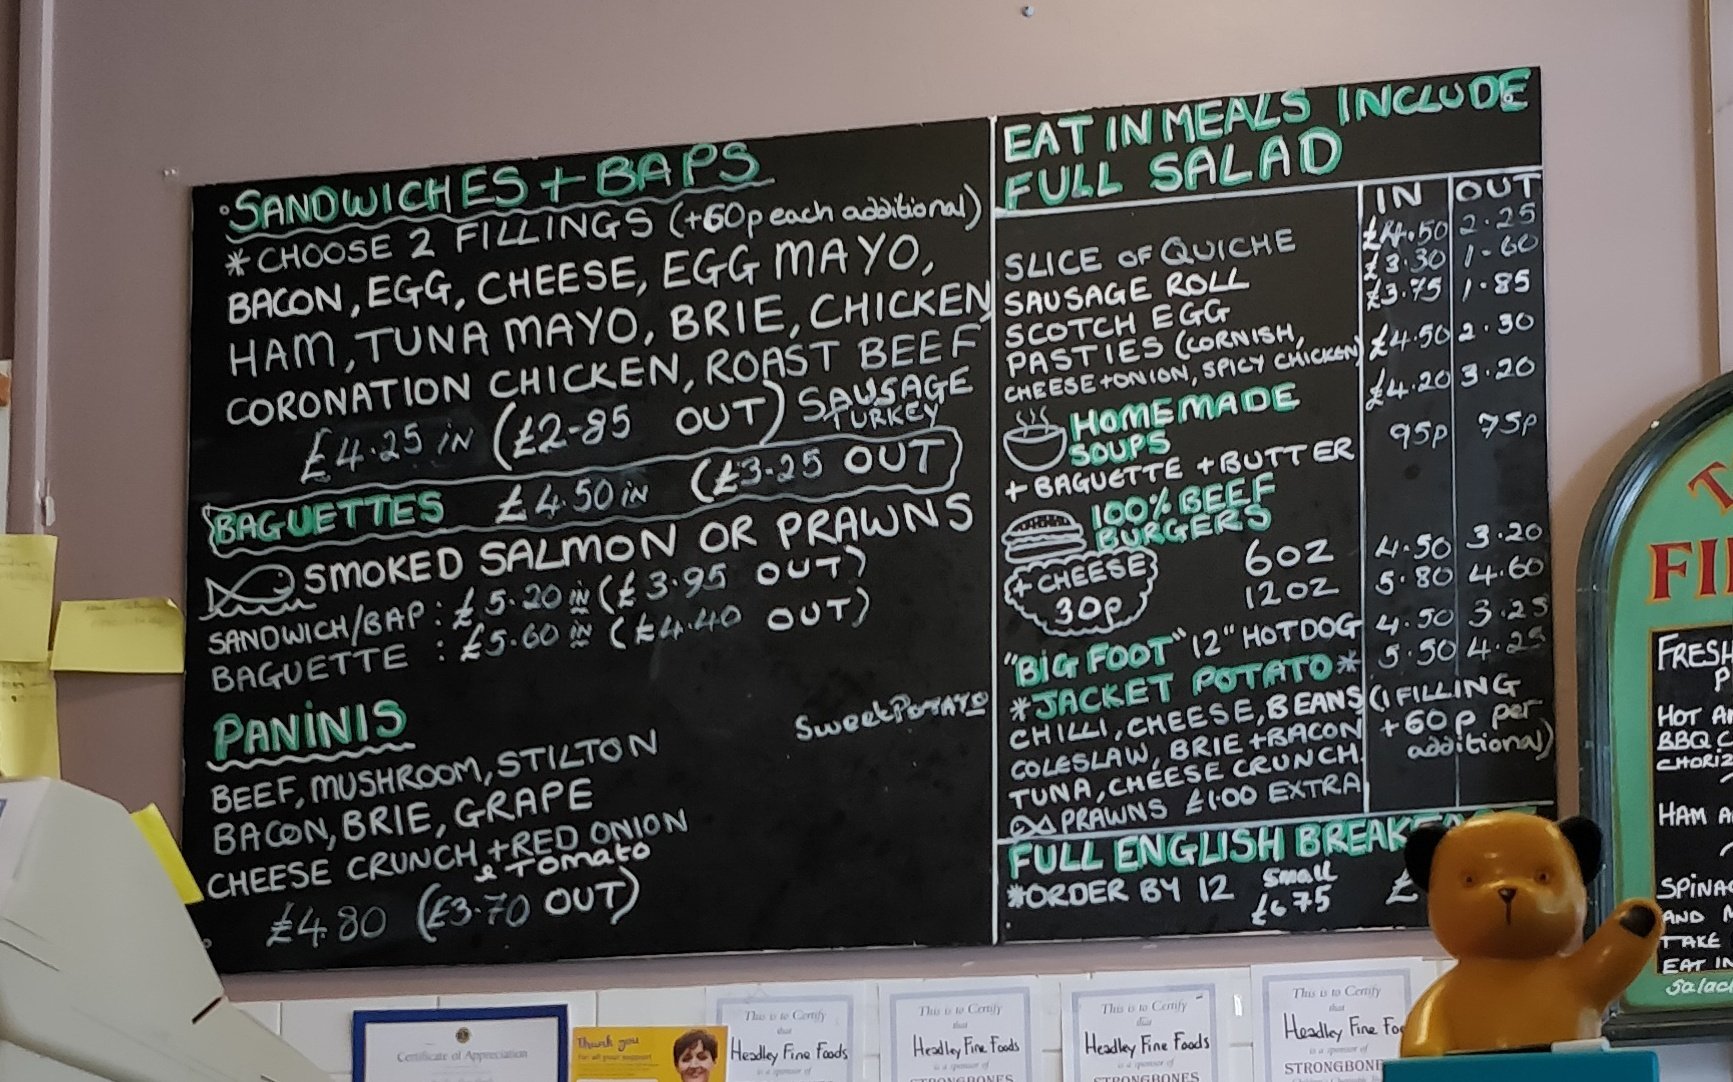 SANDWICHES + BAPS
*CHOOSE 2 FILLINGS (+60p each additional)
BACON, EGG, CHEESE, EGG MAYO,
HAM, TUNA MAYO, BRIE, CHICKEN
CORONATION CHICKEN, ROAST BEEF
£4.25 IN (£2-85 OUT) SAUSAGE
TURKEY
BAGUETTES £4.50 IN (£3-25 OUT)
SMOKED SALMON OR PRAWNS
SANDWICH/BAP : £5.20 IN (£3.95 OUT)
BAGUETTE : £5.60 IN (£4.40 OUT)
PANINIS
Sweet POTATO
BEEF, MUSHROOM, STILTON
BACON, BRIE, GRAPE
CHEESE CRUNCH + RED ONION
& TOMATO
£4.80 (£3.70 OUT)
EAT IN MEALS INCLUDE
FULL SALAD
IN OUT
SLICE OF QUICHE £4.50 2.25
SAUSAGE ROLL £3.30 1-60
SCOTCH EGG £3.75 1.85
PASTIES (CORNISH, £4.50 2.30
CHEESE + ONION, SPICY CHICKEN)
HOMEMADE £4.20 3.20
SOUPS
+ BAGUETTE + BUTTER 95p 75p
100% BEEF
BURGERS
6OZ 4.50 3.20
+ CHEESE
30p
12OZ 5.80 4.60
"BIG FOOT" 12" HOTDOG 4.50 3.25
*JACKET POTATO* 5.50 4.25
CHILLI, CHEESE, BEANS (1 FILLING
COLESLAW, BRIE + BACON +60p per
TUNA, CHEESE CRUNCH additional)
PRAWNS £1.00 EXTRA
FULL ENGLISH
*ORDER BY 12 Small £
£6.75
FRESH
HOT
BBQ
HAM
AND
TAKE
EAT IN
Certificate of Appreciation
Thank you
for all your support
This is to Certify
that
Headley Fine Foods
is a sponsor of
This is to Certify
that
Headley Fine Foods
is a sponsor of
STRONGBONES
This is to Certify
that
Headley Fine Foods
is a sponsor of
STRONGBONES
This is to Certify
that
Headley Fine
is a sponsor of
STRONGBONES